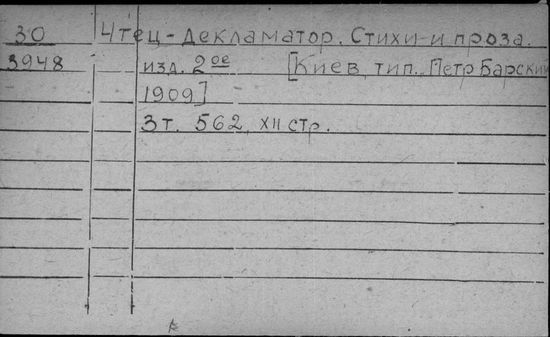 30 Чтец-Декламатор. Стихи и проза.
3948 изд. 2ое [Киев, тип. Петр Барский
1909]
3 т. 562, XII стр.